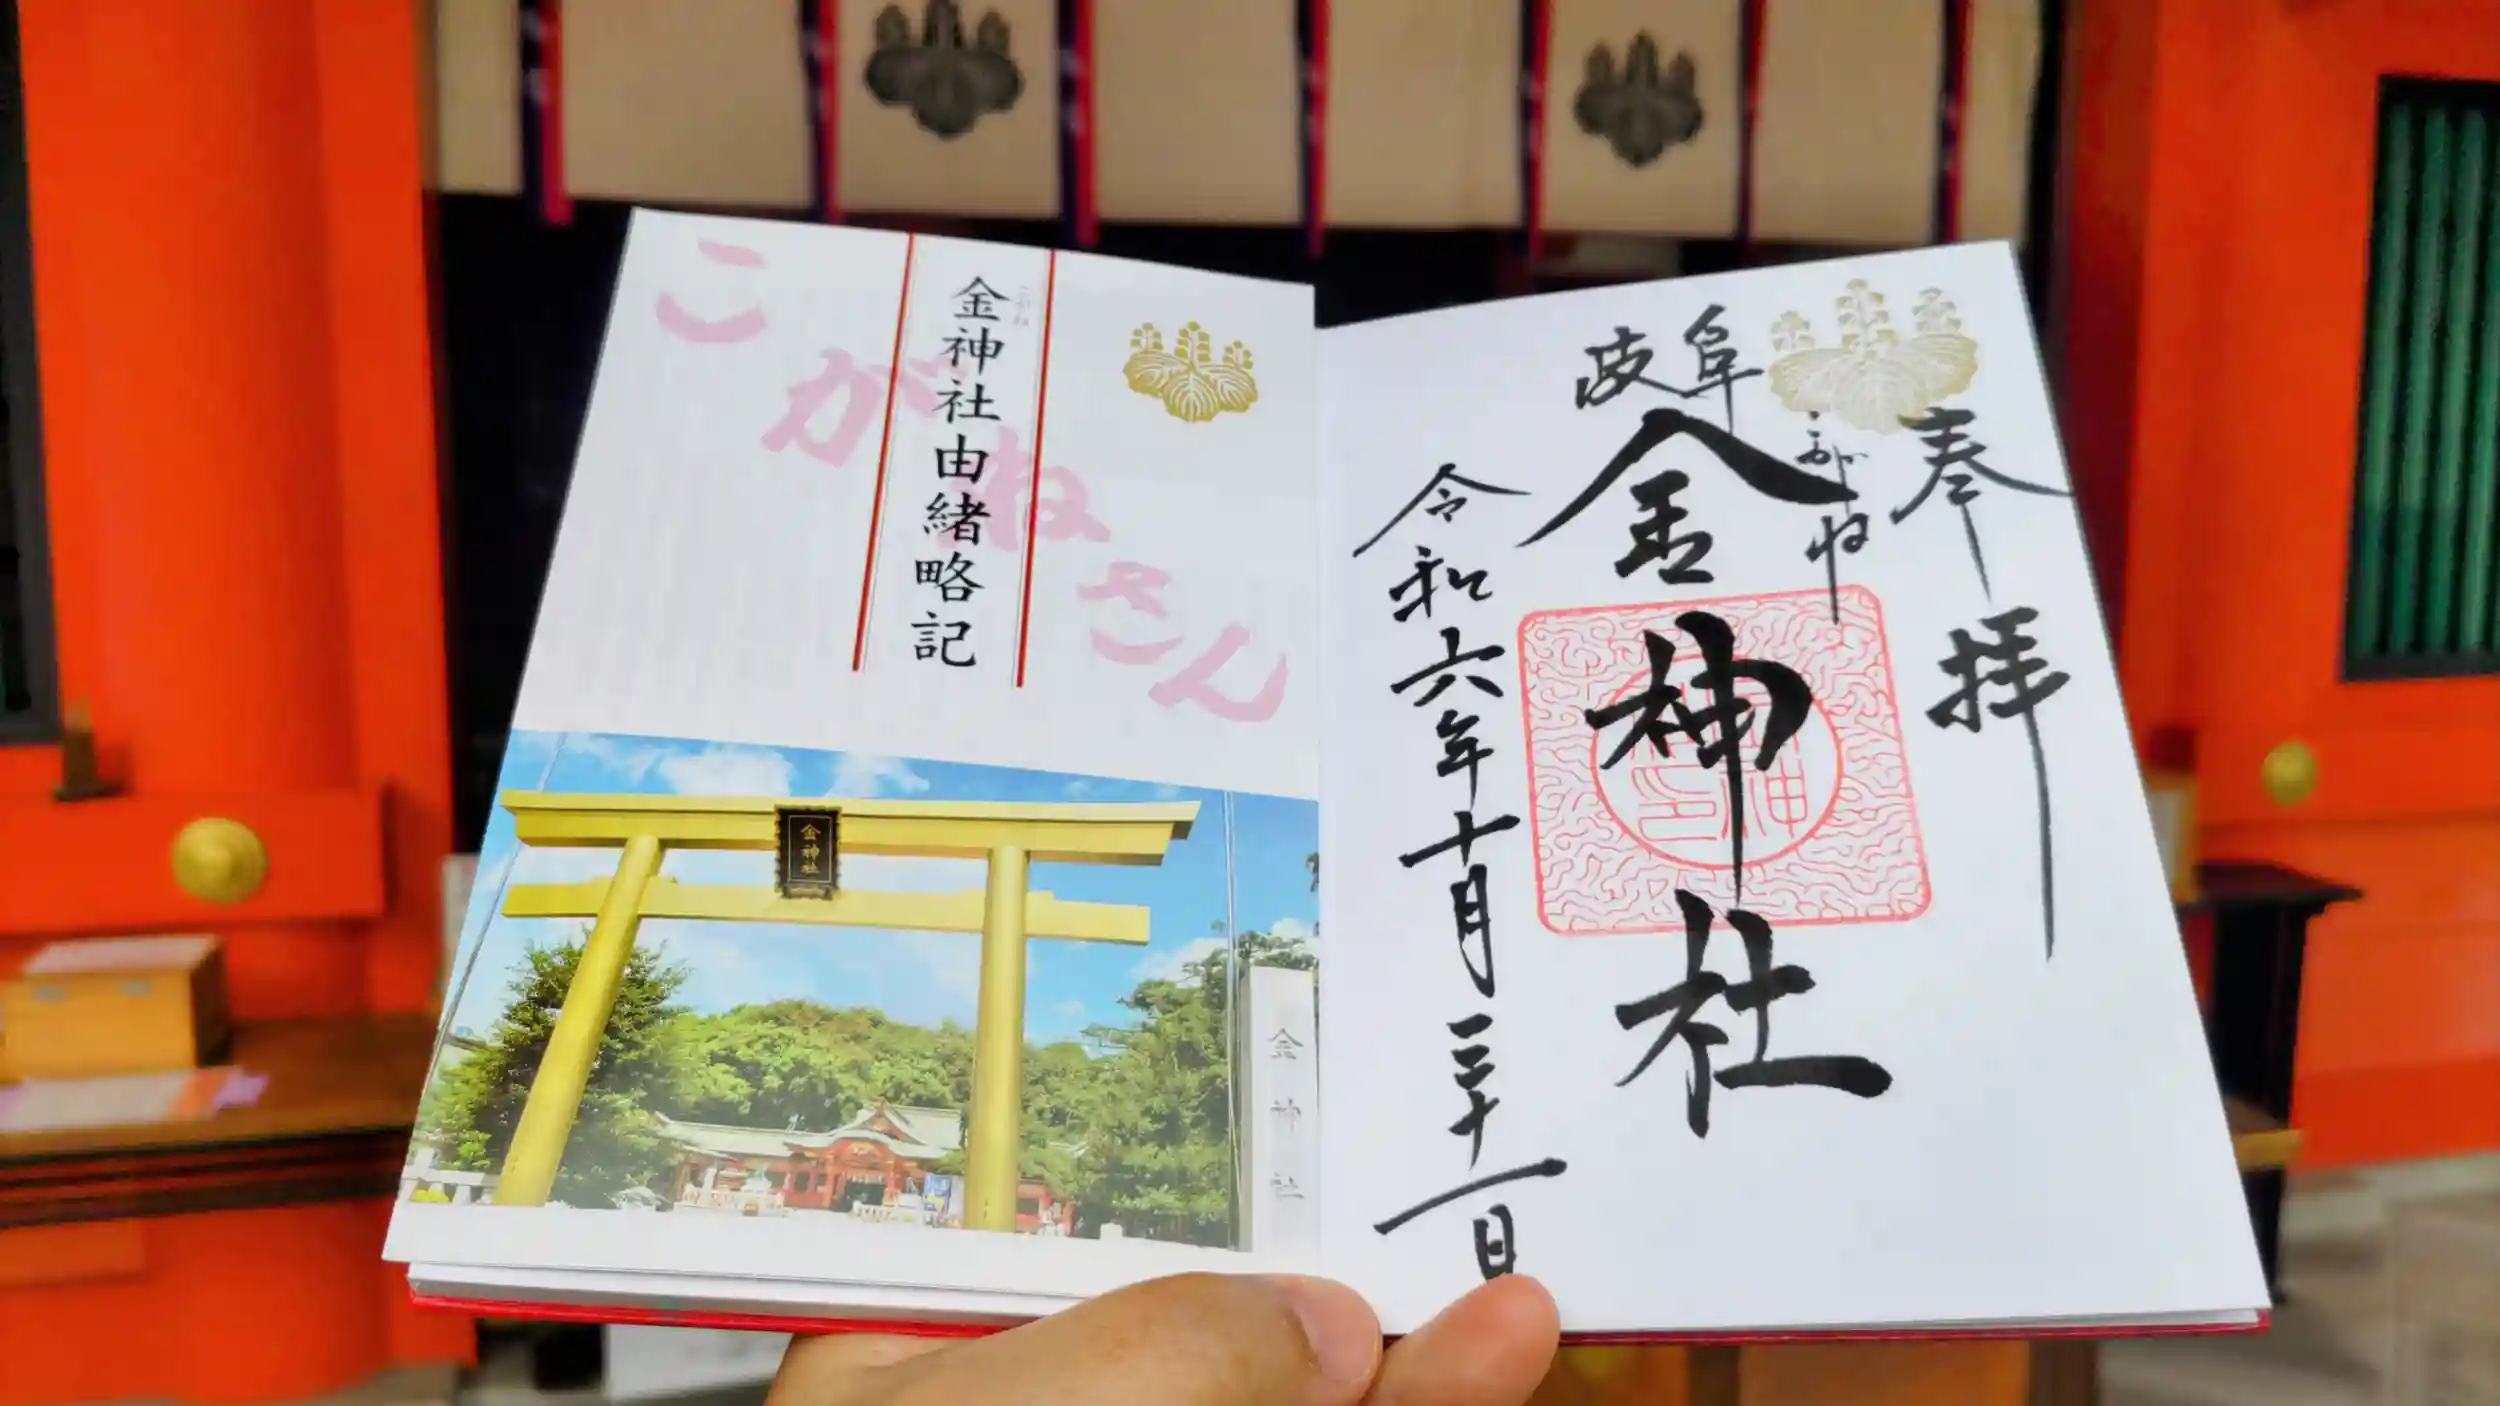 こがねさん
金神社由緒略記
こがね
金神社
金神社
奉拝
岐阜
こがね
金神社
令和六年十月三十一日